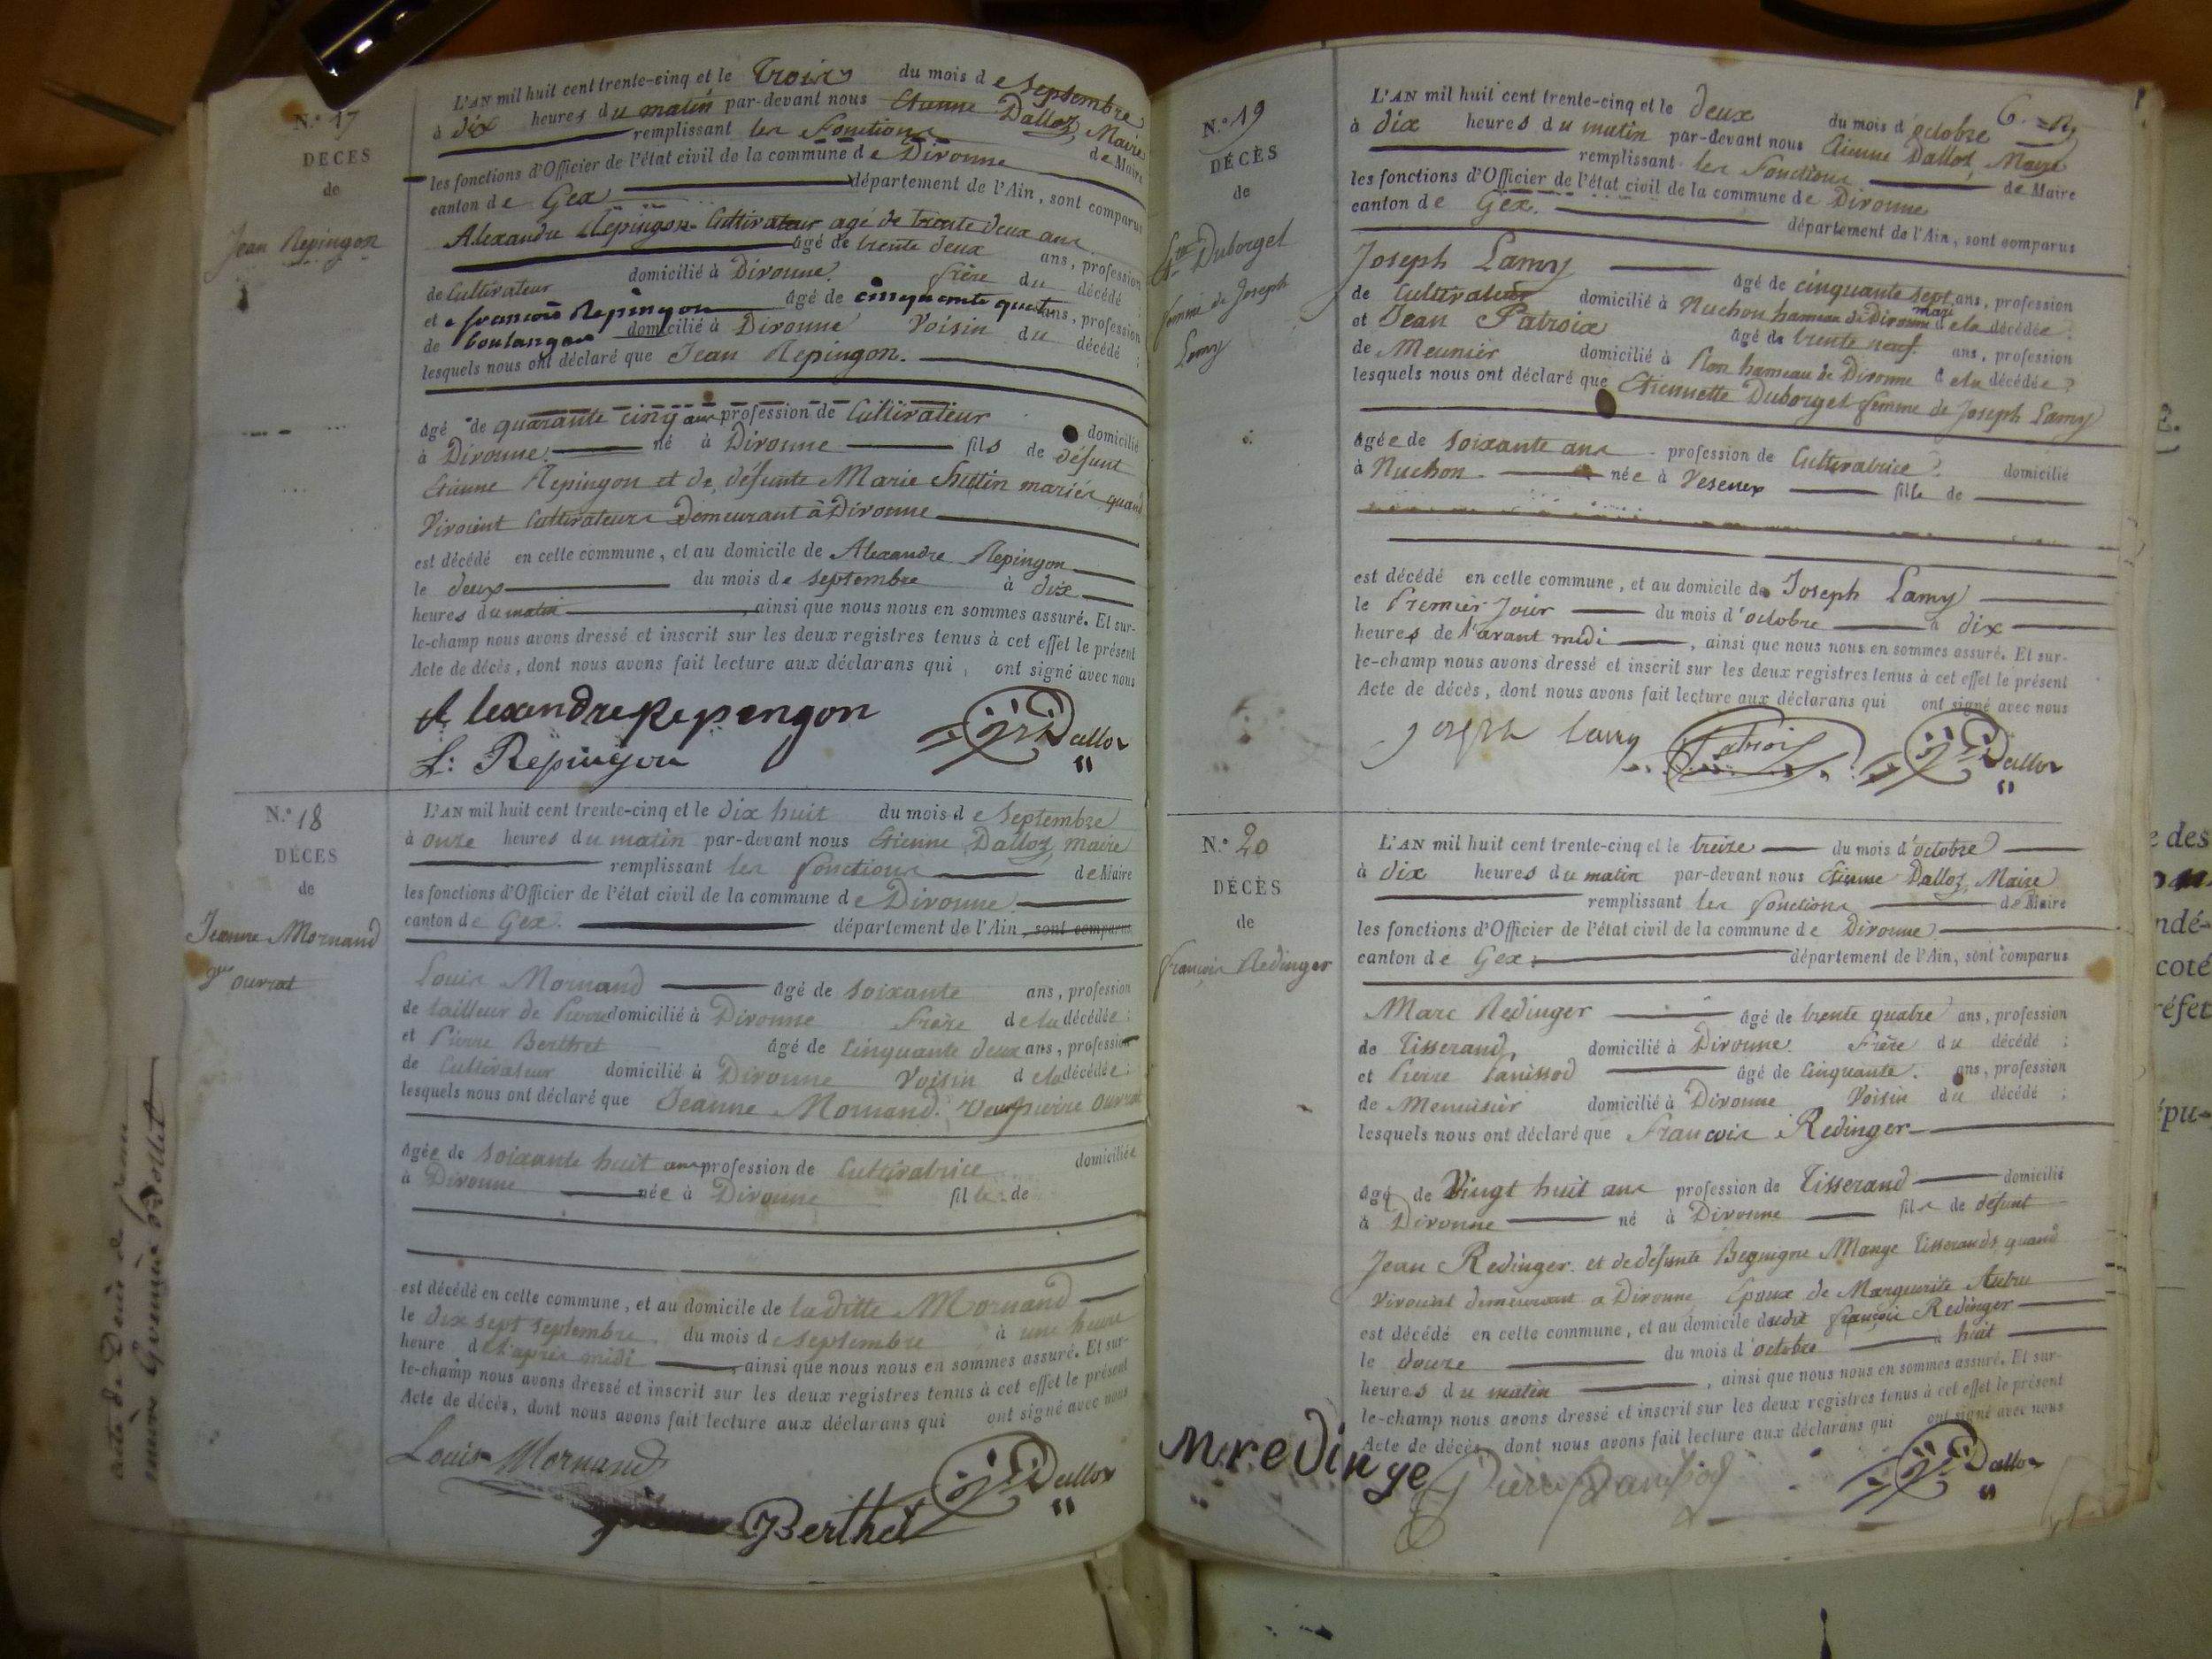 N.° 17
DECES
de
Jean Repingon
L'AN mil huit cent trente-cinq et le Trois du mois de Septembre
à dix heures du matin par-devant nous Etienne Dalloz, Maire
remplissant les Fonctions de Maire
les fonctions d'Officier de l'état civil de la commune de Divonne
canton de Gex département de l'Ain, sont comparus
Alexandre Repingon Cultivateur agé de trente deux ans
âgé de trente deux ans, profession
de Cultivateur domicilié à Divonne. frère du décédé ;
et françois Repingon âgé de cinquante quatre ans, profession
de boulanger domicilié à Divonne Voisin du décédé ;
lesquels nous ont déclaré que Jean Repingon.
âgé de quarante cinq ans profession de Cultivateur domicilié
à Divonne né à Divonne fils de défunt
Etienne Repingon et de défunte Marie Chutin mariés quand
Vivoient Cultivateurs Demeurant à Divonne
est décédé en cette commune, et au domicile de Alexandre Repingon
le deux du mois de septembre à dix
heures du matin, ainsi que nous nous en sommes assuré. Et sur-
le-champ nous avons dressé et inscrit sur les deux registres tenus à cet effet le présent
Acte de décès, dont nous avons fait lecture aux déclarans qui, ont signé avec nous
Alexandre Repengon
f: Repingon
Dalloz
N.° 18
DÉCES
de
Jeanne Mornand
Vve ouvrat
L'AN mil huit cent trente-cinq et le dix huit du mois de Septembre
à onze heures du matin par-devant nous Etienne Dalloz, maire
remplissant les fonctions de Maire
les fonctions d'Officier de l'état civil de la commune de Divonne
canton de Gex. département de l'Ain, sont comparus
Louis Mornand âgé de soixante ans, profession
de tailleur de Pierre domicilié à Divonne Frère de la décédée ;
et Pierre Berthet âgé de Cinquante deux ans, profession
de Cultivateur domicilié à Divonne Voisin de la décédée ;
lesquels nous ont déclaré que Jeanne Mornand. Veuf pierre Ouvrat
âgée de soixante huit ans profession de Cultivatrice domiciliée
à Divonne née à Divonne fille de
est décédé en cette commune, et au domicile de laditte Mornand
le dix sept septembre. du mois de septembre à une heure
heure de l'après midi, ainsi que nous nous en sommes assuré. Et sur-
le-champ nous avons dressé et inscrit sur les deux registres tenus à cet effet le présent
Acte de décès, dont nous avons fait lecture aux déclarans qui ont signé avec nous
Louis Mornand
Berthet
Dalloz
acte de Décès de
N.° 19
DÉCÈS
de
Duborget
femme de Joseph
Lamy
L'AN mil huit cent trente-cinq et le deux du mois d'octobre
à dix heures du matin par-devant nous Etienne Dalloz, Maire
remplissant les Fonctions de Maire
les fonctions d'Officier de l'état civil de la commune de Divonne
canton de Gex. département de l'Ain, sont comparus
Joseph Lamy âgé de cinquante sept ans, profession
de Cultivateur domicilié à Nuchon hameau de Divonne mari de la décédée ;
et Jean Patroix âgé de trente neuf ans, profession
de Meunier domicilié à Plon hameau de Divonne de la décédée ?
lesquels nous ont déclaré que Etiennette Duborget femme de Joseph Lamy
âgée de soixante ans profession de Cultivatrice domicilié
à Nuchon née à Vesenex fille de
est décédé en cette commune, et au domicile de Joseph Lamy
le Premier Jour du mois d'octobre à dix
heures de l'avant midi, ainsi que nous nous en sommes assuré. Et sur-
le-champ nous avons dressé et inscrit sur les deux registres tenus à cet effet le présent
Acte de décès, dont nous avons fait lecture aux déclarans qui ont signé avec nous
Joseph Lamy
Patroix
Dalloz
N.° 20
DÉCÈS
de
françois Redinger
L'AN mil huit cent trente-cinq et le treize du mois d'octobre
à dix heures du matin par-devant nous Etienne Dalloz, Maire
remplissant les fonctions de Maire
les fonctions d'Officier de l'état civil de la commune de Divonne
canton de Gex: département de l'Ain, sont comparus
Marc Redinger âgé de trente quatre ans, profession
de Tisserand domicilié à Divonne. Frère du décédé ;
et Pierre Panissod âgé de Cinquante. ans, profession
de Menuisier domicilié à Divonne Voisin du décédé ;
lesquels nous ont déclaré que François Redinger
âgé de Vingt huit ans profession de Tisserand domicilié
à Divonne né à Divonne fils de défunt
Jean Redinger et de défunte Mange tisserands quand
Vivoient demeurant a Divonne Epoux de Marguerite
est décédé en cette commune, et au domicile dudit françois Redinger
le douze du mois d'octobre à huit
heures du matin, ainsi que nous nous en sommes assuré. Et sur-
le-champ nous avons dressé et inscrit sur les deux registres tenus à cet effet le présent
Acte de décès dont nous avons fait lecture aux déclarans qui ont signé avec nous
M redinge
Pierre Panissod
Dalloz
e des
ndé-
coté
réfet
épu-